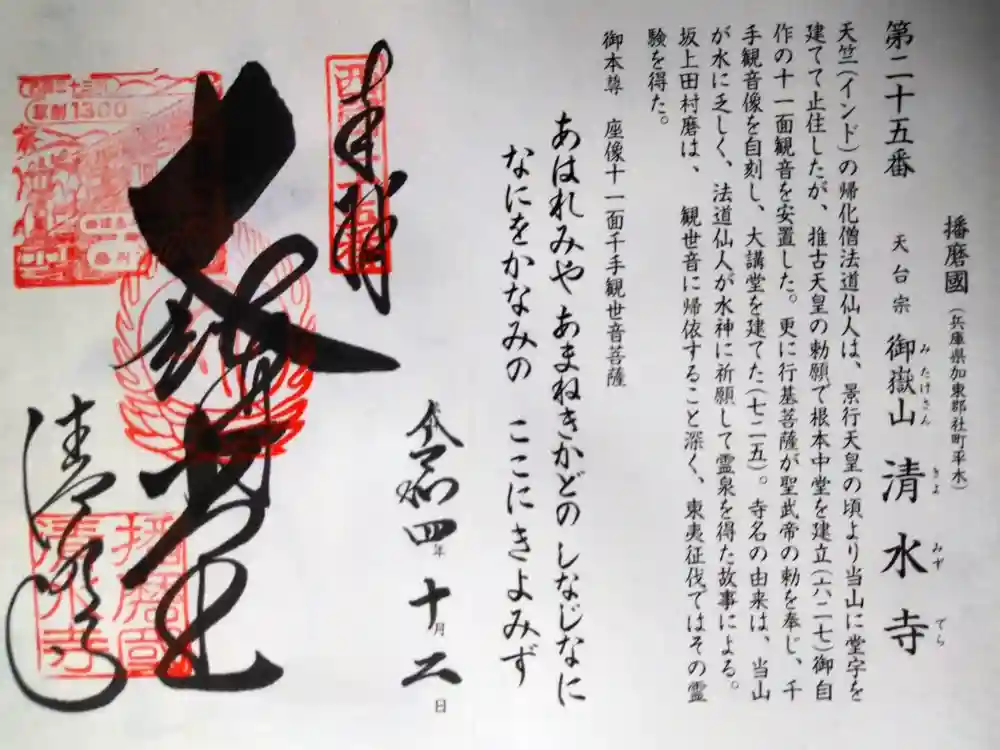 第二十五番
播磨國(兵庫県加東郡社町平木)
天台宗 御嶽山 清水寺
みたけさん きよ みず でら
天竺(インド)の帰化僧法道仙人は、景行天皇の頃より当山に堂宇を
建てて止住したが、推古天皇の勅願で根本中堂を建立(六二七)御自
作の十一面観音を安置した。更に行基菩薩が聖武帝の勅を奉じ、千
手観音像を自刻し、大講堂を建てた(七二五)。寺名の由来は、当山
が水に乏しく、法道仙人が水神に祈願して霊泉を得た故事による。
坂上田村磨は、観世音に帰依すること深く、東夷征伐ではその霊
験を得た。
御本尊 座像十一面千手観世音菩薩
あはれみや あまねきかどの しなじなに
なにをかなみの ここにきよみず
奉拝
大講堂
清水寺
令和四年十月二日
草創1300
播磨國
清水寺